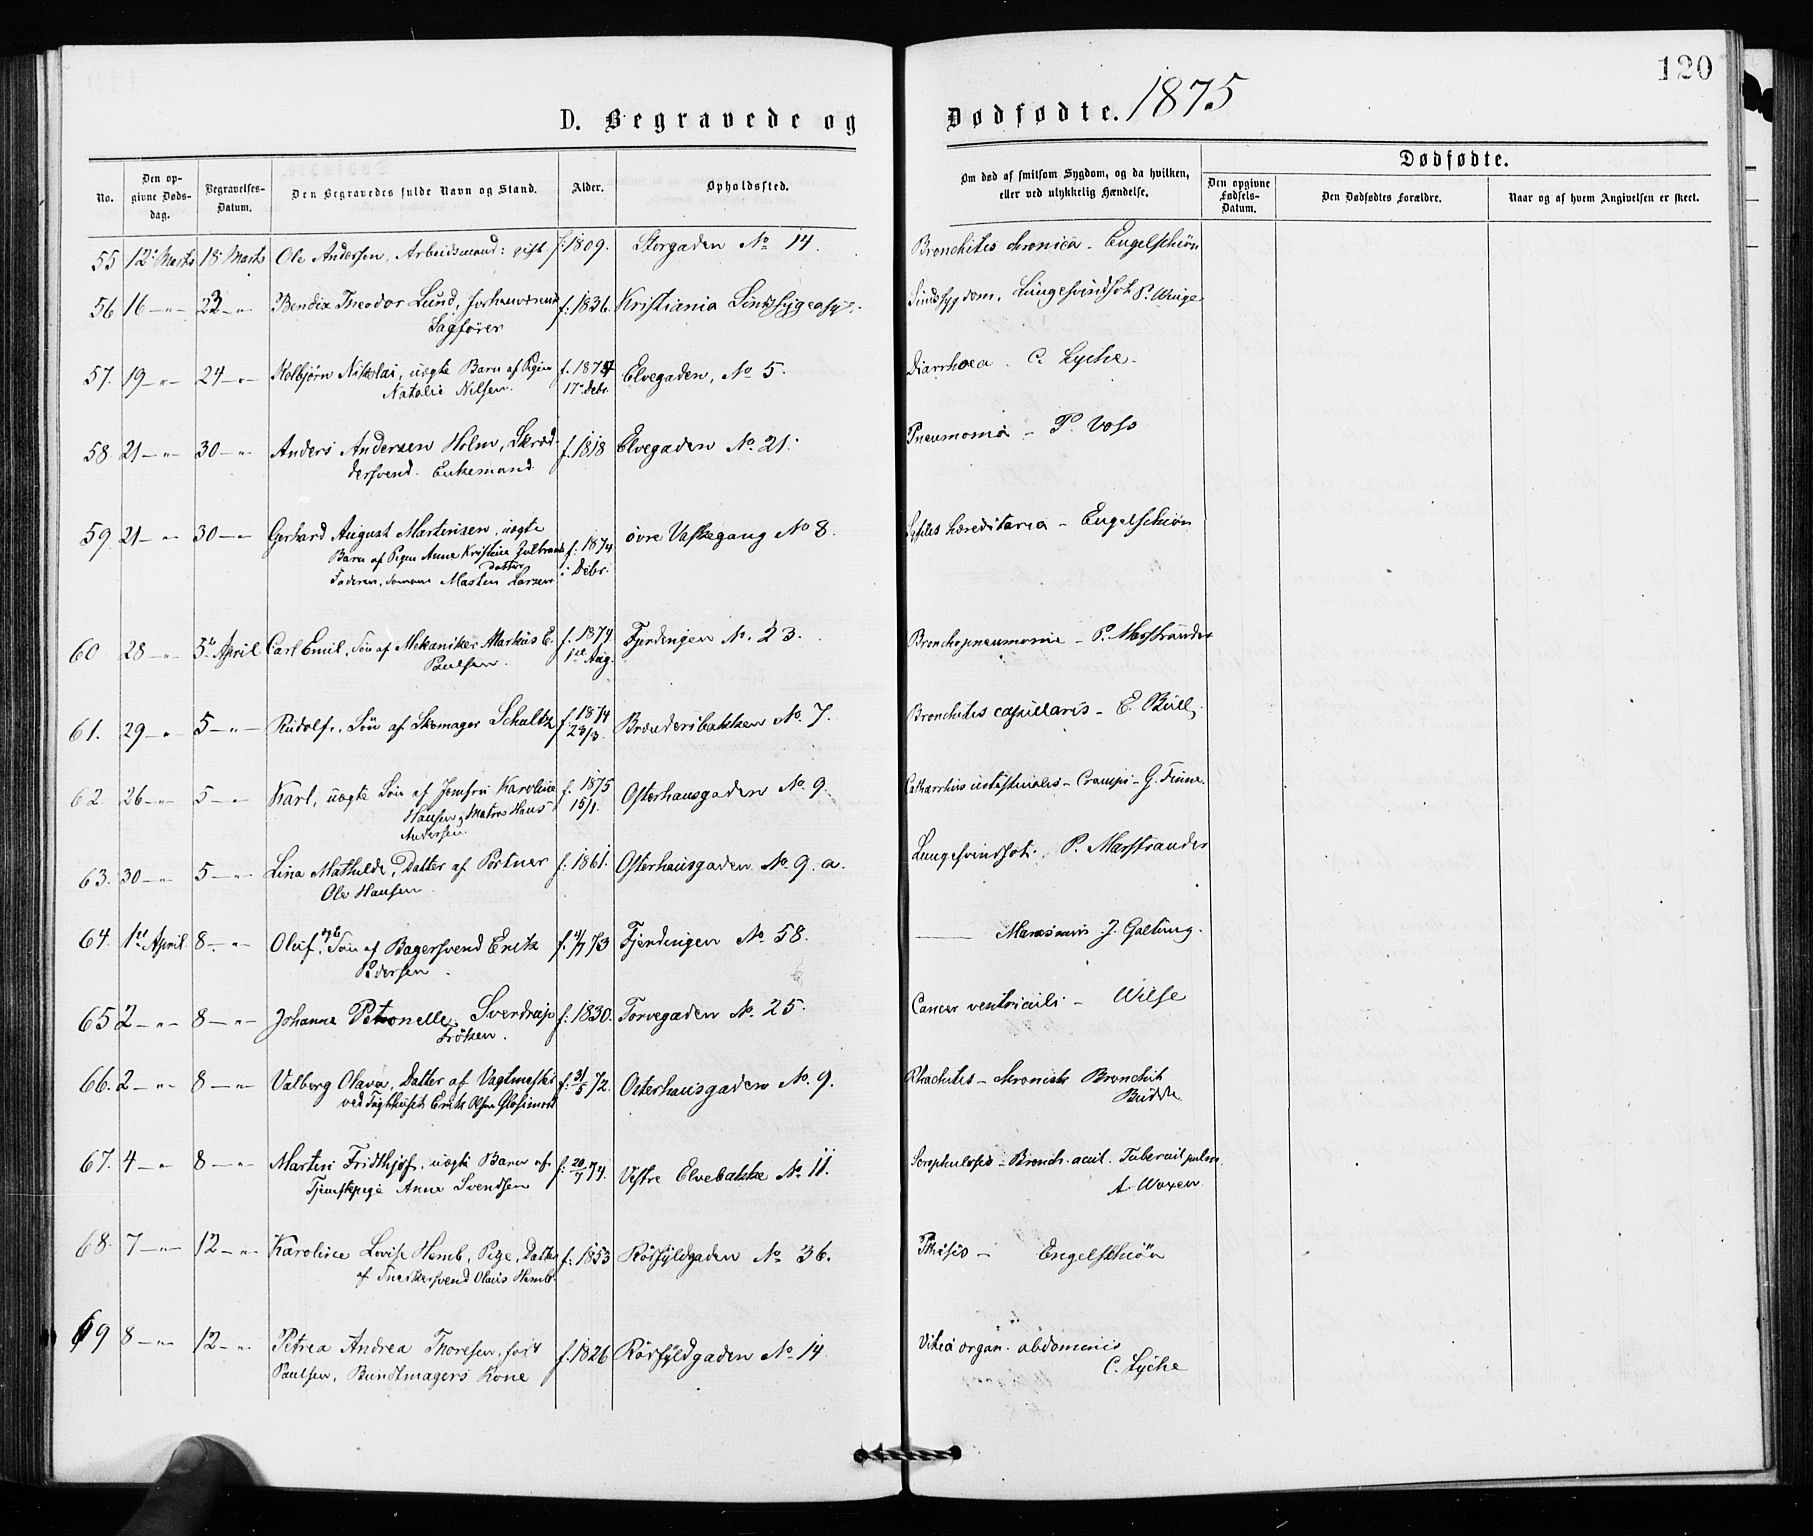 120
D. Begravede og Dødfødte. 1875
No. Den opgivne Dødsdag. Begravelses-Datum. Den Begravedes fulde Navn og Stand. Alder. Opholdssted. Om død af smitsom Sygdom, og da hvilken, eller ved ulykkelig Hændelse. Dødfødte. Den opgivne Fødsels-Datum. Den Dødfødtes Forældre. Naar og af hvem Angivelsen er skeet.
55 12' Marts 18' Marts Ole Andersen, Arbeidsmand: gift f. 1809. Storgaden No 14. Bronchitis chronica - Engelschiøn
56 16 -"- 23 -"- Bendix Theodor Lund, forhenværende f. 1836. Kristiania Sindssygeasyl. Sindssygdom, Lungesvindsot P. Winge
Sagfører
57. 19 -"- 24 -"- Kolbjørn Nikolai, uægte Barn af Pigen f. 1874 Elvegaden, No 5. Diarrhoea. C. Lyche.
Natalie Nilsen. 17de Debr.
58 21 -"- 30 -"- Anders Andersen Holm, Skræd- f. 1818 Elvegaden No. 21. Pneumonia - P. Voss
dersvend. Enkemand
59. 21 -"- 30 -"- Gerhard August Martinsen, uægte øvre Vaskegang No 8. Syfilis hereditaria - Engelschiøn
Barn af Pigen Anne Kristine Gulbrands f. 1874
datter i Debr.
Faderen, Morten Larsen
60 28 -"- 5te April Carl Emil, Søn af Mekaniker Markus E. f. 1874 Fjerdingen No. 23. Bronchopneumonie - P. Marstrander
Paulsen. 1ste Aug.
61. 29 -"- 5 -"- Rudolf, Søn af Skomager Schultz f. 1874 Brænderibakken No. 7. Bronchitis capillaris - E. Bull.
23/3.
62. 26 -"- 5 -"- Karl, uægte Søn af Jomfru Karoline f. 1875 Osterhausgaden No. 9. Catharrhus intestinalis - Crampi - G. Finne.
Hansen og Matros Hans 15/1.
Andersen.
63. 30 -"- 5 -"- Lina Mathilde, Datter af Portner f. 1861. Osterhausgaden No. 9. a. Lungesvindsot. P. Marstrander
Ole Hansen.
64. 1ste April 8 -"- Oluf, Søn af Bagersvend Erik f. 73 Fjerdingen No. 58. Marasmus. J. Galtung.
Pedersen.
65 2 -"- 8 -"- Johanne Petronelle Sverdrup f. 1830. Torvegaden No. 25. Cancer ventriculi - Wilse
Frøken.
66. 2 -"- 8 -"- Valborg Olava, Datter af Vagtmester f. 31/5 72. Osterhausgaden No. 9. Rhachitis - chronisk Bronchit
ved Tugthuset Erik Olsen Budde
67. 4 -"- 8 -"- Martin Fridthjof, uægte Barn af f. 20/ 74. Vestre Elvebakke No 11. Scrophulosis - Bronch. acut. Tubercul pulm.
Tjenstepige Anne Svendsen A. Woxen
68. 7 -"- 12 -"- Karoline Lovise Hemb, Pige, Datter f. 1853 Rosfyldgaden No 36. Pthisis - Engelschiøn
af Snedkersvend Olaus Hemb.
69 8 -"- 12 -"- Petrea Andrea Thoresen, født f. 1826 Rosfyldgaden No 14 Vitia organ. abdominis
Paulsen, Bundtmagers Kone C. Lyche